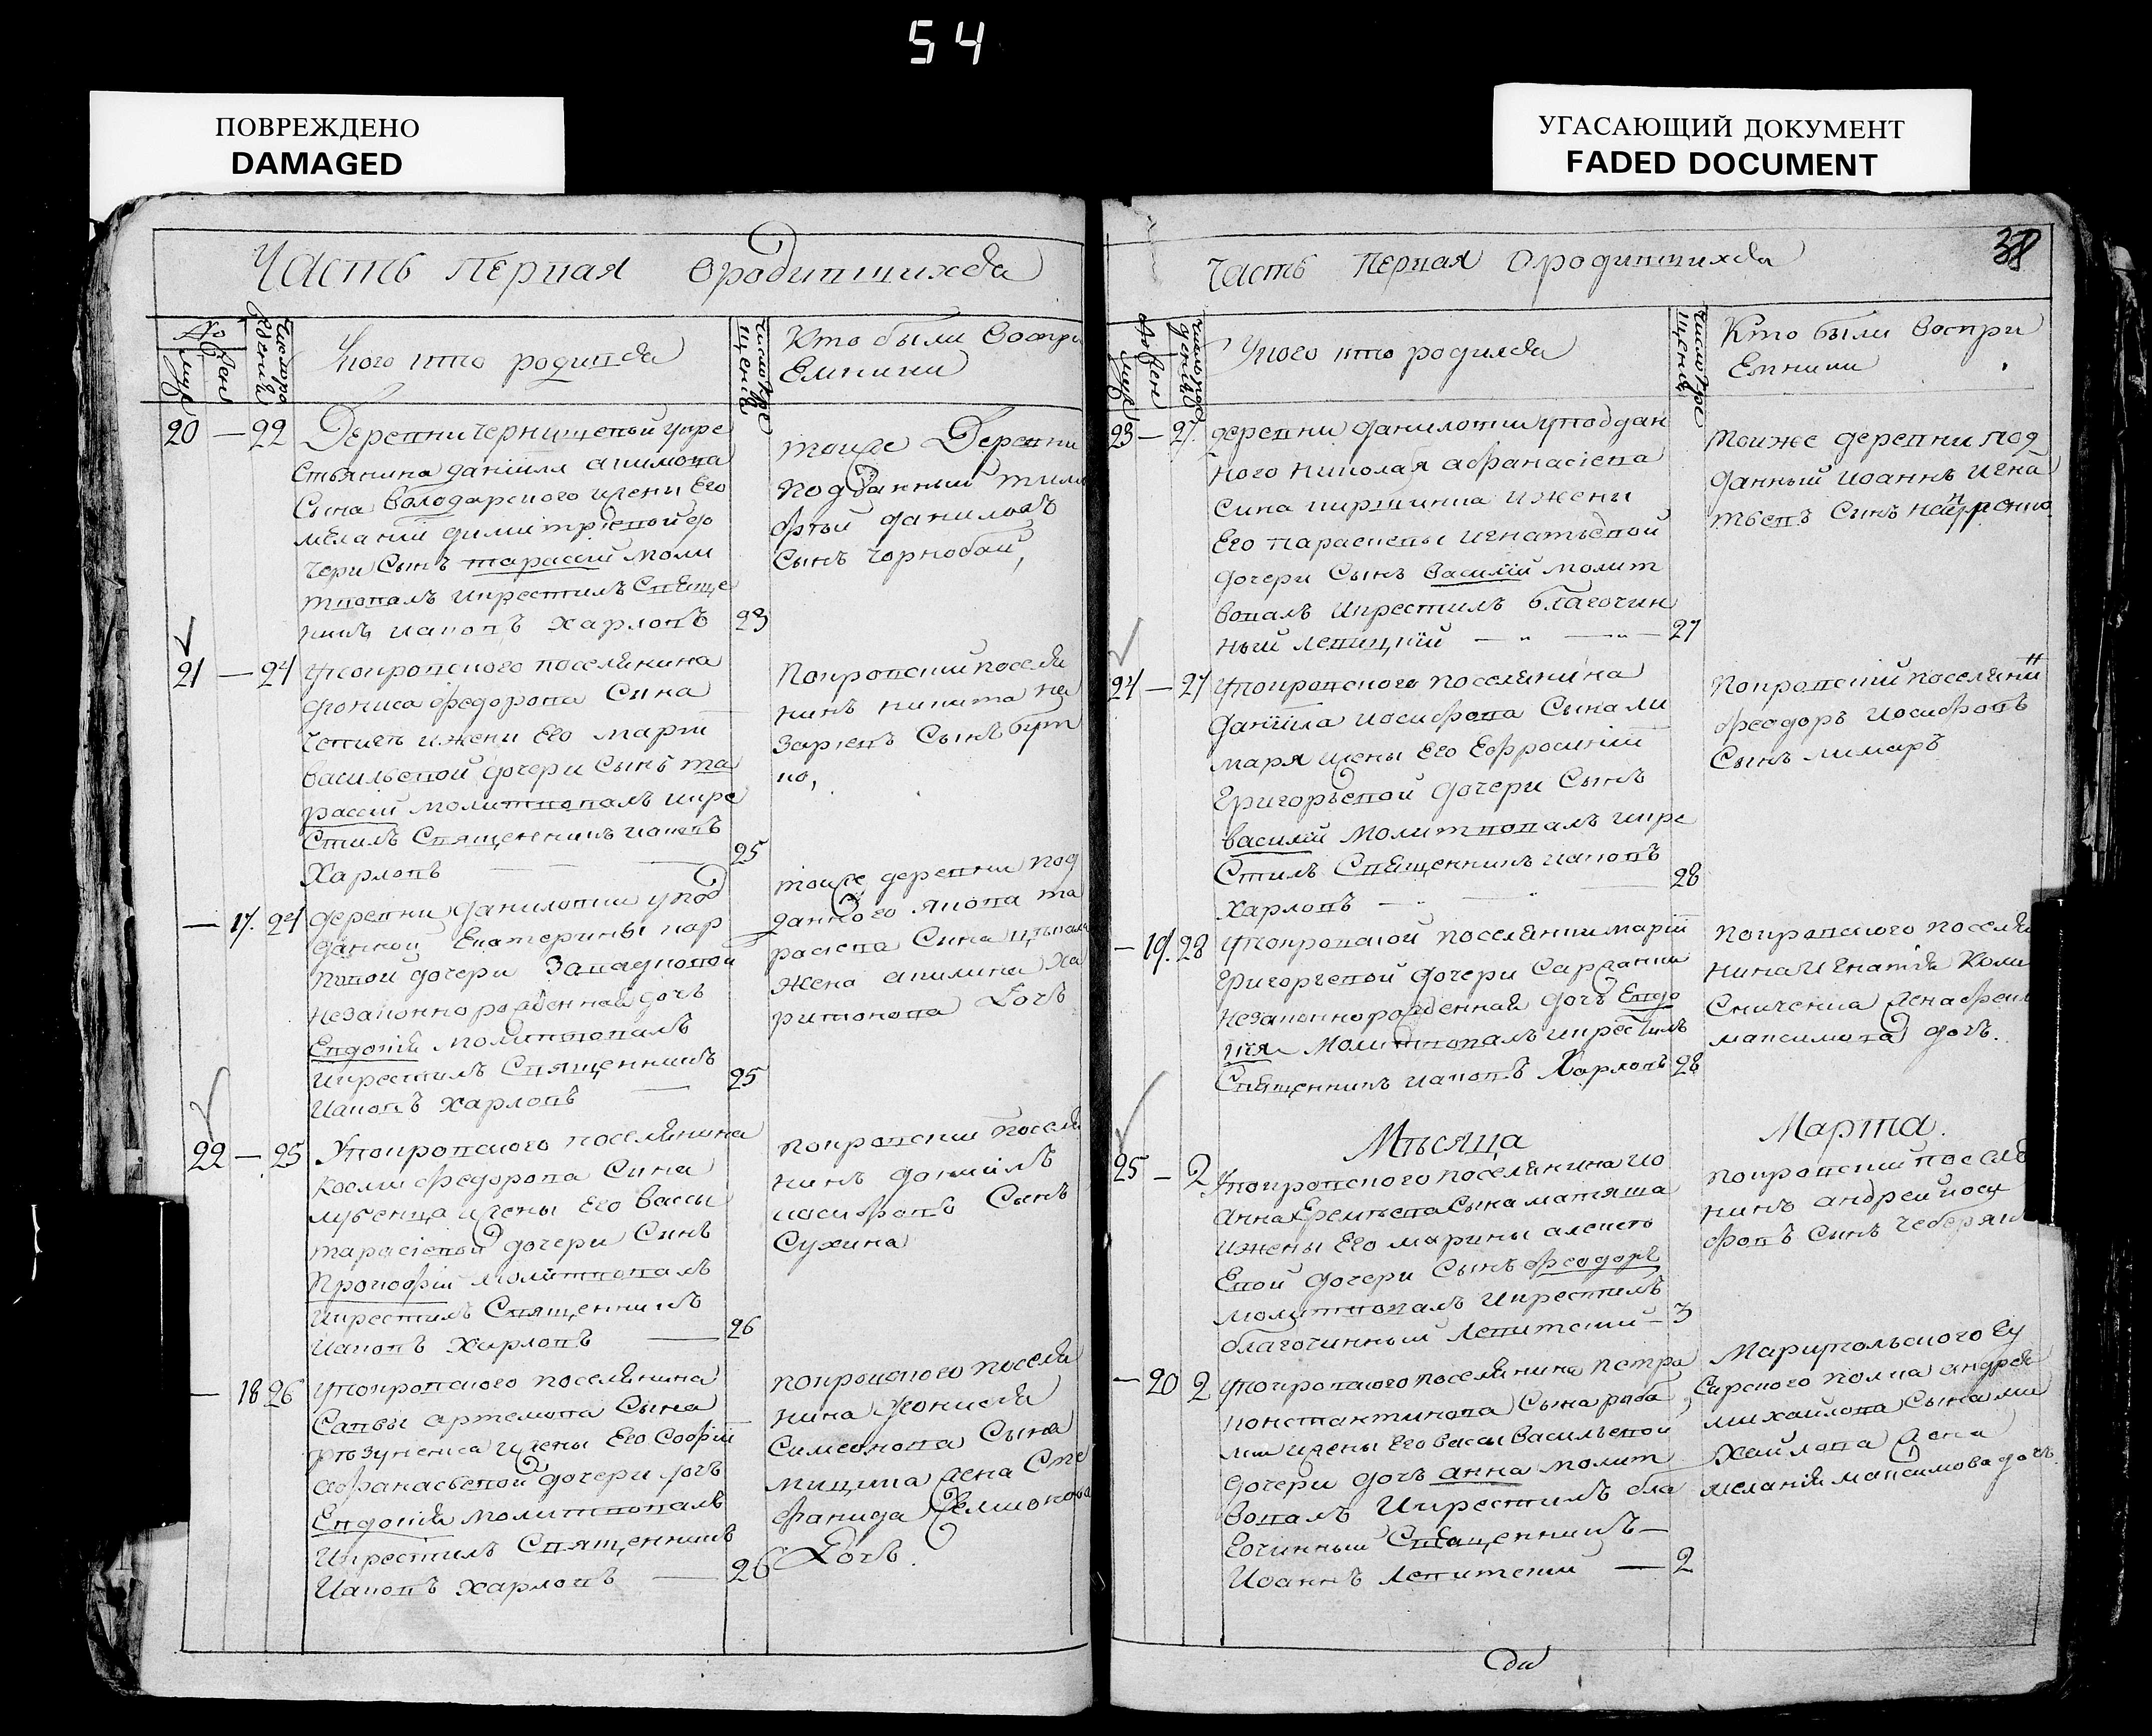 54
ПОВРЕЖДЕНО
DAMAGED
УГАСАЮЩИЙ ДОКУМЕНТ
FADED DOCUMENT
Часть первая ородившихся
№
муж
жен
число рождения
Укого кто родился
число крещения
Кто были воспри
Емники
20 — 22
Деревни чернищевой укре
стьянина даніила акимова
Сына володарского ижени Его
меланій димитріевой до
чери Сынъ тарасій моли
твовалъ икрестилъ Свяще
нникъ иаковъ харловъ 23
тоиже Деревни
подданний тимо
фѣй даниловъ
сынъ чорнобай,
21 — 24
упокровского поселянина
дѳониса федорова Сина
ижени Его маріи
васильевой дочери Сынъ та
расій молитвовалъ икре
стилъ Священникъ иаковъ
Харловъ 25
покровский поселя
нинъ никита на
заріевъ Сынъ бут
ко,
— 17. 24
деревни даниловки упод
данной Екатерины кар
повой дочери
незаконнорожденная дочь
Евдокія молитвовалъ
икрестилъ Священникъ
иаковъ харловъ 25
тоиже деревни под
данного якова та
расіева Сина
жена акилина ха
ритонова Дочь
22 — 25
Упокровского поселянина
косми федорова Сина
лубенца ижены Его васы
тарасіевой дочери Синъ
Прокофій молитвовалъ
икрестилъ Священникъ
иаковъ харловъ 26
покровский поселя
нинъ даніилъ
иосифовъ Сынъ
Сухина
— 18 26
упокровского поселянина
Савы артемова Сына
ижены Его Софіи
афанасьевой дочери дочь
Евдокія молитвовалъ
икрестилъ Священникъ
Иаковъ харловъ 26
покровского поселя
нина дѳонисія
Симеонова Сына
мицика жена Сте
фанида
Дочь.
Часть первая Ородившихся
38
№
муж
жен
число рождения
Укого кто родился
число крещения
Кто были воспри
Емники
23 — 27.
деревни даниловки уподдан
ного николая афанасіева
сина киршина ижени
Его параскевы игнатьевой
дочери Сынъ василій молит
вовалъ икрестилъ благочин
ный левицкій 27
тоиже деревни под
данный иоаннъ игна
тьевъ синъ
24 — 27
упокровского поселянина
даніила иосифова Сына ли
маря жены Его Ефросиніи
григорьевой дочери Сынъ
василій молитвовалъ икре
стилъ Священникъ иаковъ
харловъ 28
покровский поселянинъ
феодоръ иосифовъ
сынъ лимаръ
— 19. 28
упокровской поселянки маріи
григоріевой дочери
незаконнорожденная дочь Евдо
кія молитвовалъ икрестилъ
Священникъ иаковъ Харловъ 28
покровского поселя
нина игнатія коли
сниченка жена
максимова дочь.
Мѣсяца Марта.
25 — 2
упокровского поселянина ио
анна Еремѣева Сына матяша
ижены Его марины алексѣ
Евой дочери Сынъ феодоръ
молитвовалъ икрестилъ
благочинный левитский — 3
покровский поселя
нинъ андрей иоси
фовъ Синъ
— 20 2
упокровского поселянина петра
константинова Сына
ижены Его васы васильевой
дочери дочь анна молит
вовалъ икрестилъ бла
гочинный Священникъ —
Иоаннъ левитский — 2
Мариупольского Гу
сарского полка андрея
михайлова Сына ми
хайлова жена
меланія максимова дочь